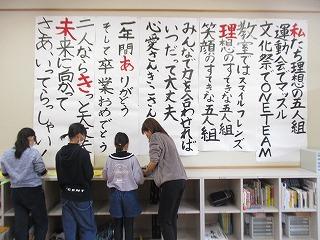 私たち理想の五人組
運動会でマッスル
文化祭でONETEAM
教室ではスマイルフレンズ
理想のすてきな五人組
笑顔のすてきな五人組
みんなで力を合わせれば
いつだって大丈夫
心愛さんきこさん
一年間ありがとう
そして卒業おめでとう
二人ならきっと大丈夫
未来に向かって
さあ、いってらっしゃい!
CENT